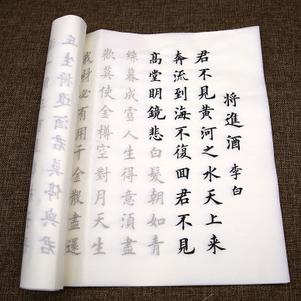 將進酒 李白
君不見黃河之水天上来
奔流到海不復回君不見
高堂明鏡悲白髮朝如青
絲暮成雪人生得意須盡
歡莫使金樽空對月天生
我材必有用千金散盡還
丘生將進酒君莫停與君